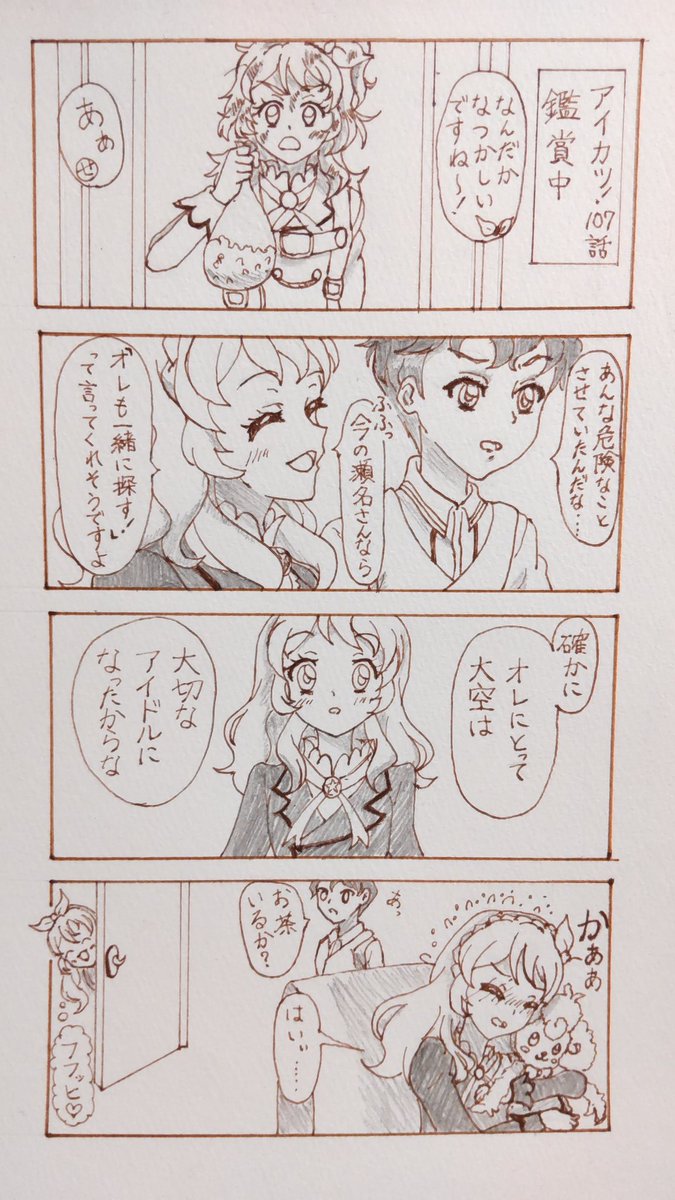 アイカツ！107話
鑑賞中
なんだか
なつかしい
ですね〜！
あぁ
せ
あんな危険なこと
させていたんだな…
ふふっ
今の瀬名さんなら
オレも一緒に探す！
って言ってくれそうですよ
確かに
オレにとって
大空は
大切な
アイドルに
なったからな
かぁぁ
あっ
お茶
いるか？
はいぃ……
フフッヒ♡